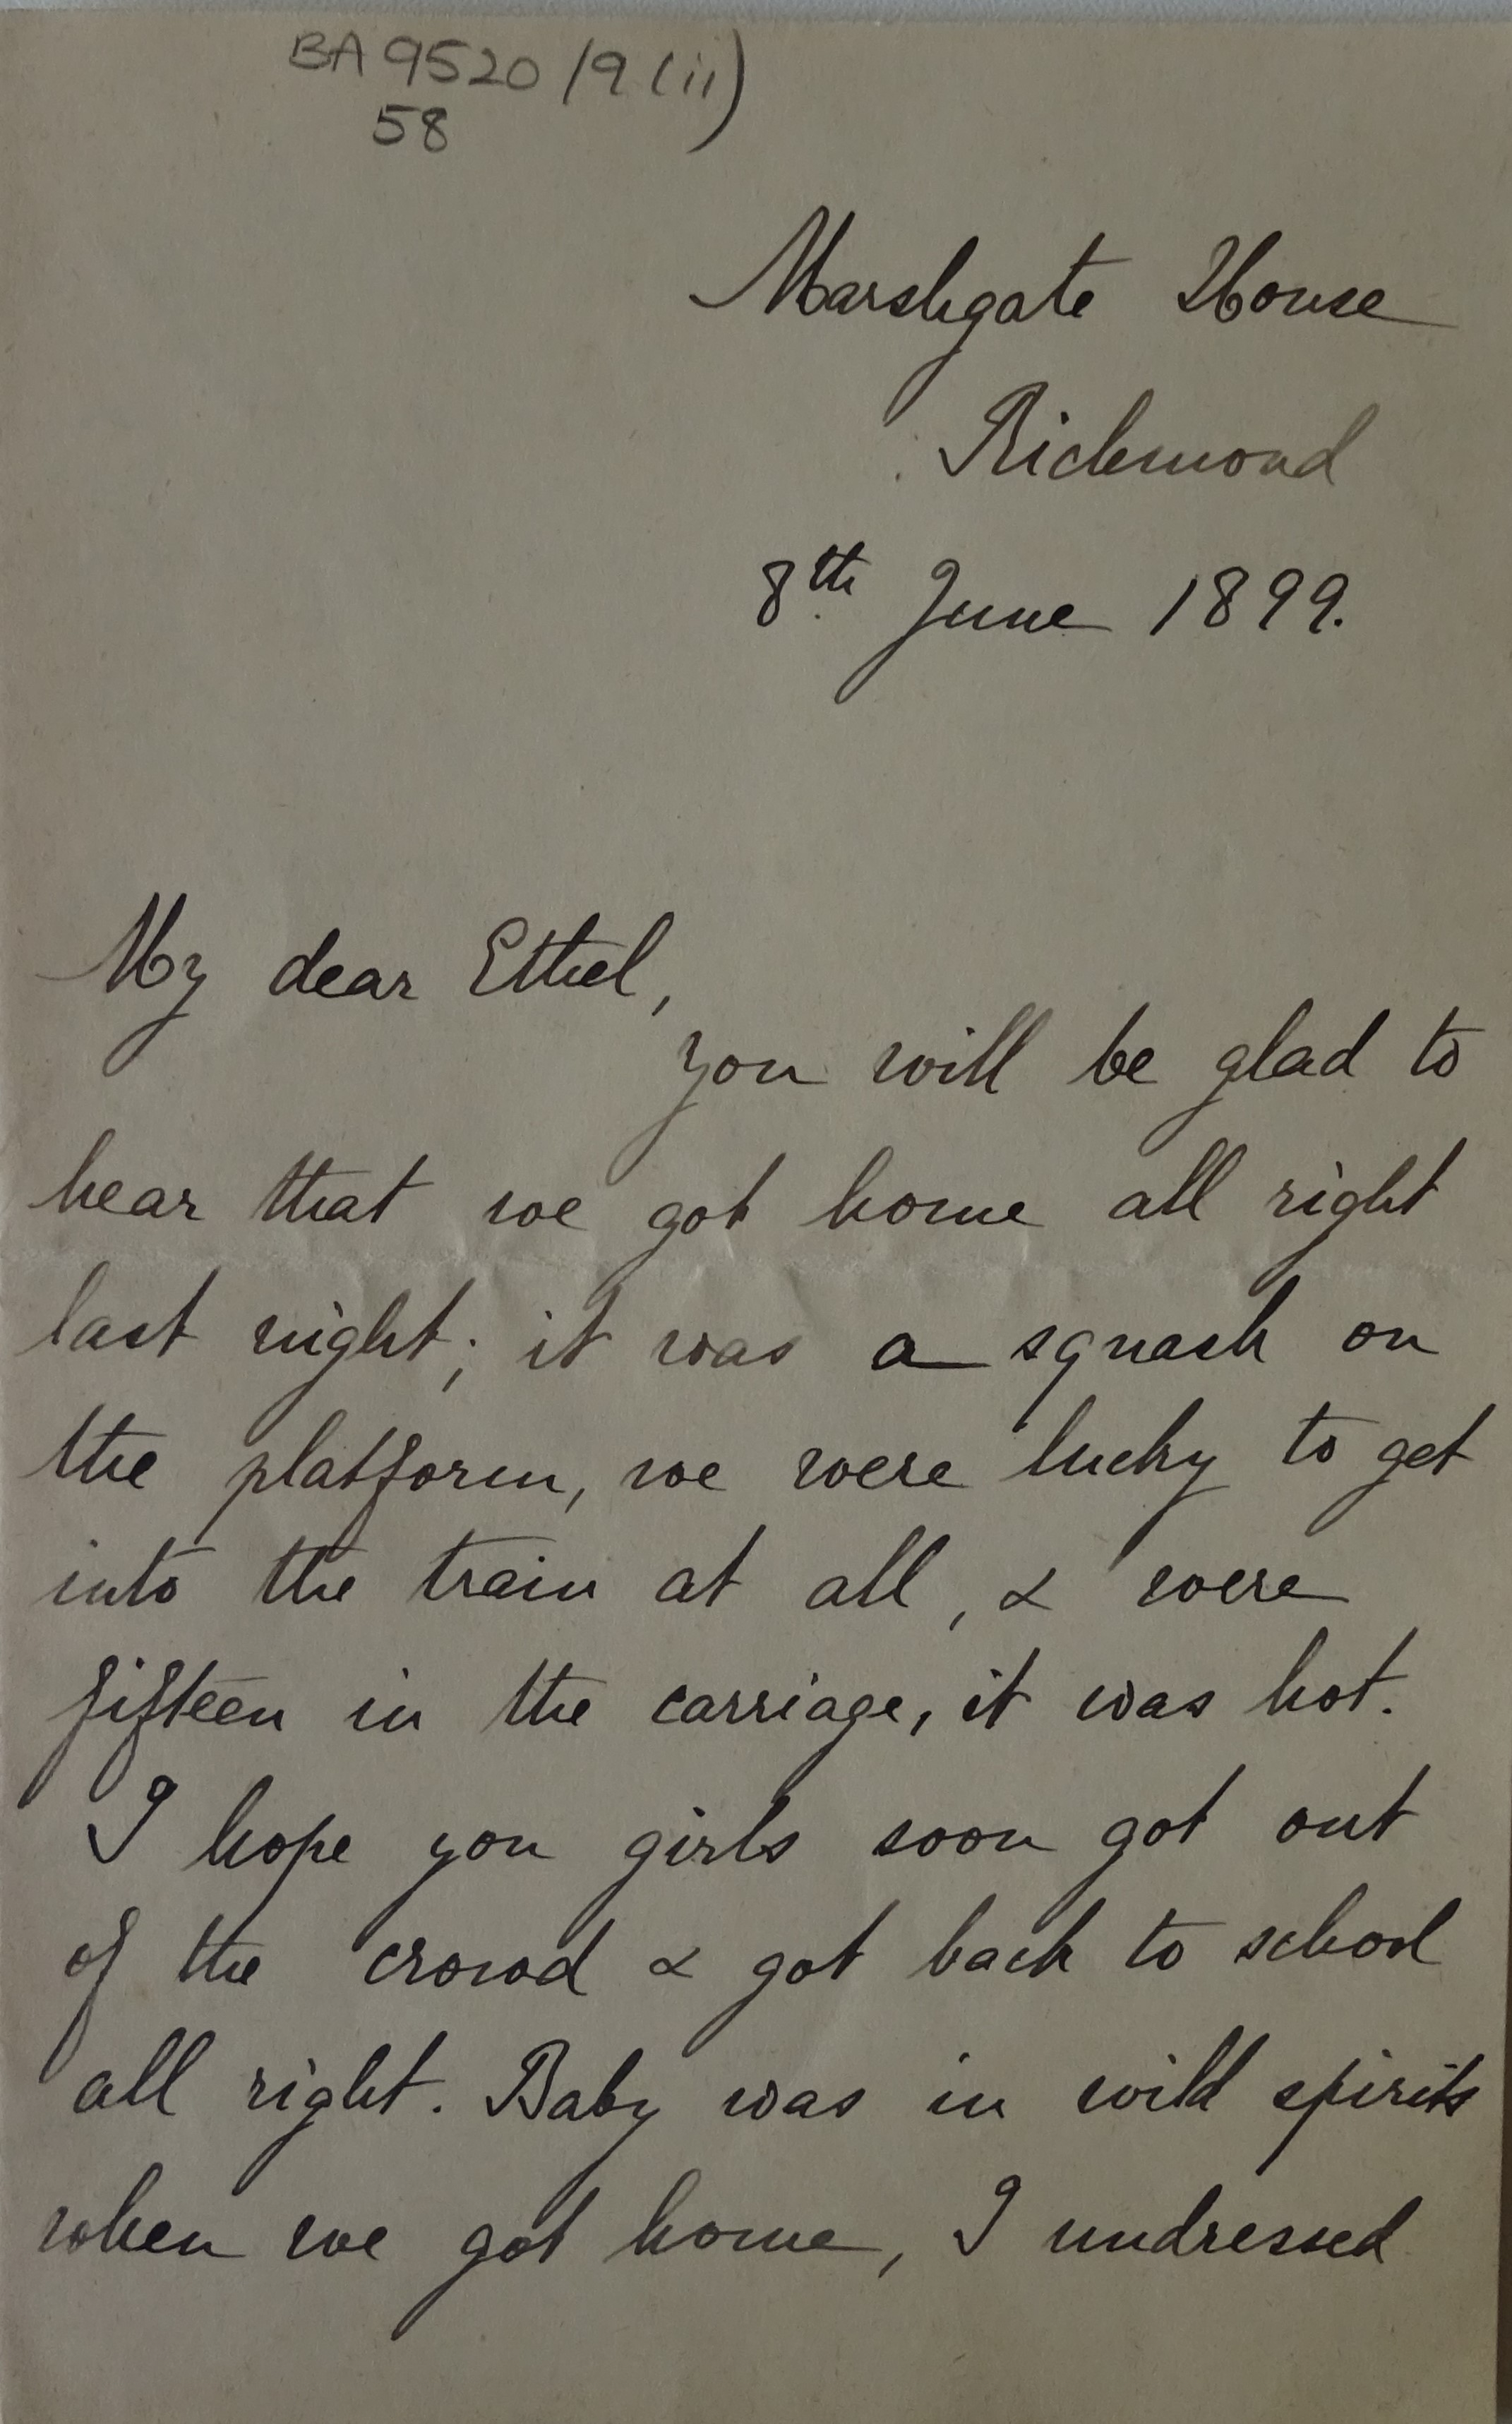 BA 9520/9(ii)
58
Marshgate House
Richmond
8th June 1899.
My dear Ethel,
you will be glad to
hear that we got home all right
last night; it was a squash on
the platform, we were lucky to get
into the train at all, & were
fifteen in the carriage, it was hot.
I hope you girls soon got out
of the crowd & got back to school
all right. Baby was in wild spirits
when we got home, I undressed